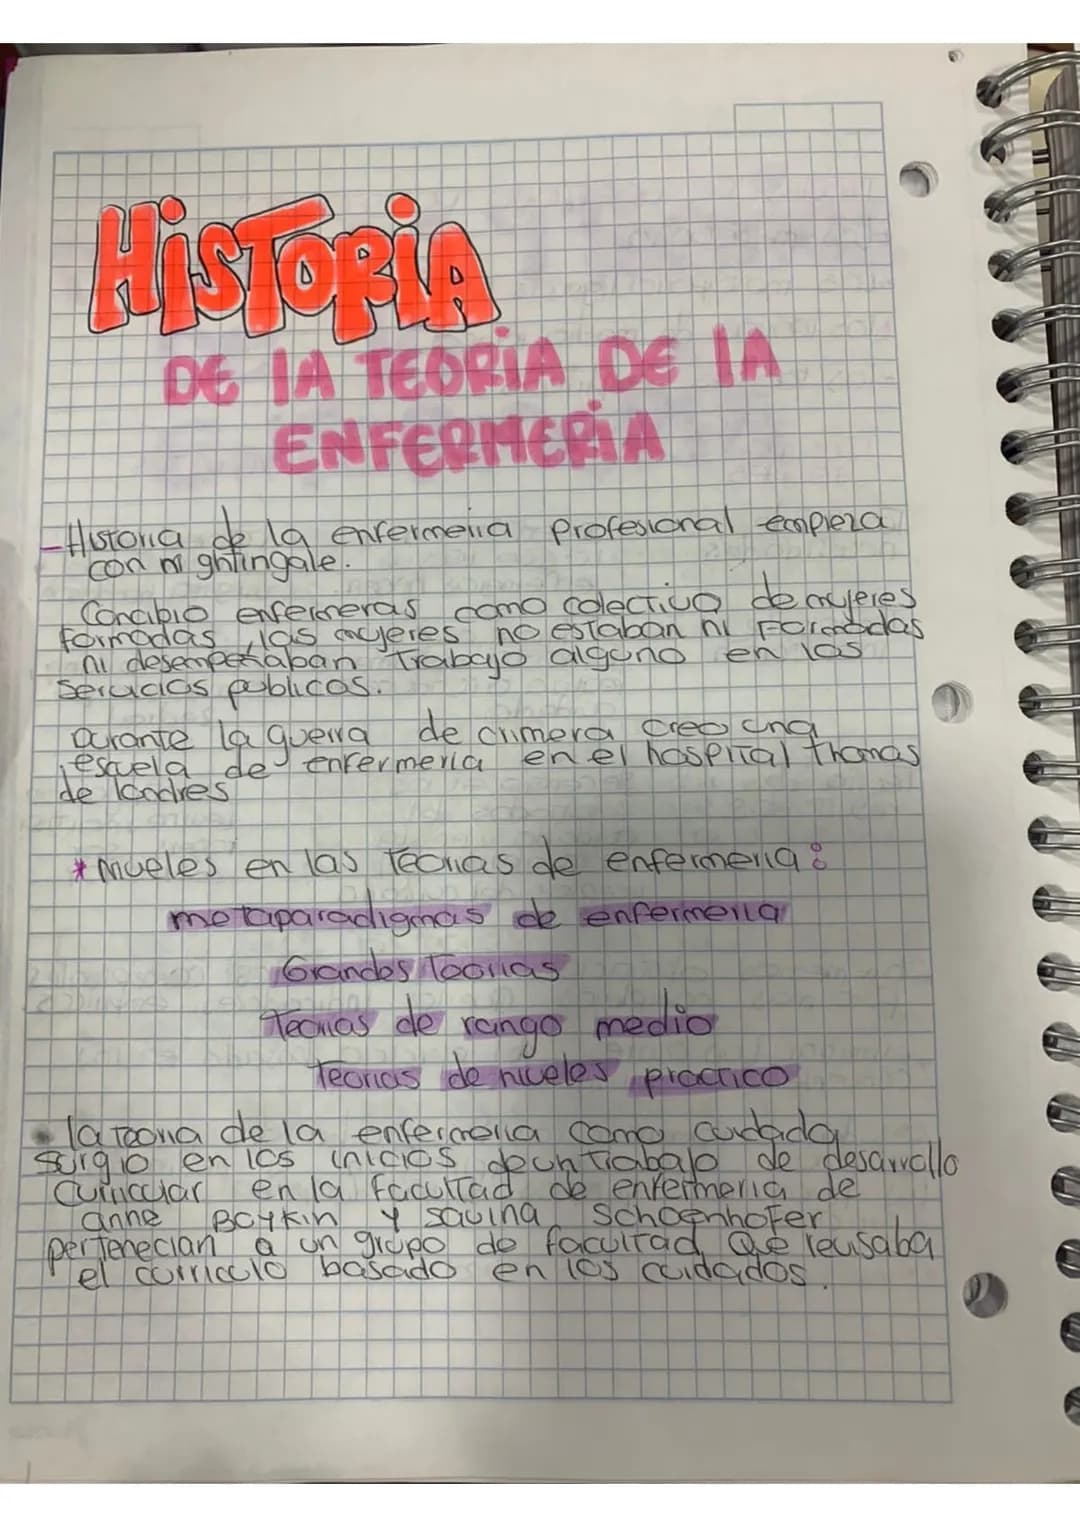 HISTORIA
DE LA TEORIA DE LA
ENFERMERIA
- Historia de la enfermeria profesional empieza
con nightingale.
Concibio enfermeras como colectivo de mujeres
formadas, las mujeres no estaban ni Formadas
ni desempeñaban Trabajo alguno en los
Servicios publicos.
Durante la guerra de crimera creo una
escuela de enfermeria en el hospital thomas
de londres
* Niveles en las teorias de enfermeria:
metaparadigmas de enfermeria
Grandes Teorias
Teorias de rango medio
Teorias de niveles practico
• la Teoria de la enfermeria como cuidado
surgio en los inicios de un trabajo de desarrollo
curricular en la facultad de enfermeria de
anne BOYKin y savina Schoenhofer
pertenecian a un grupo de facultad Que revisaba
el curriculo basado en los cuidados.